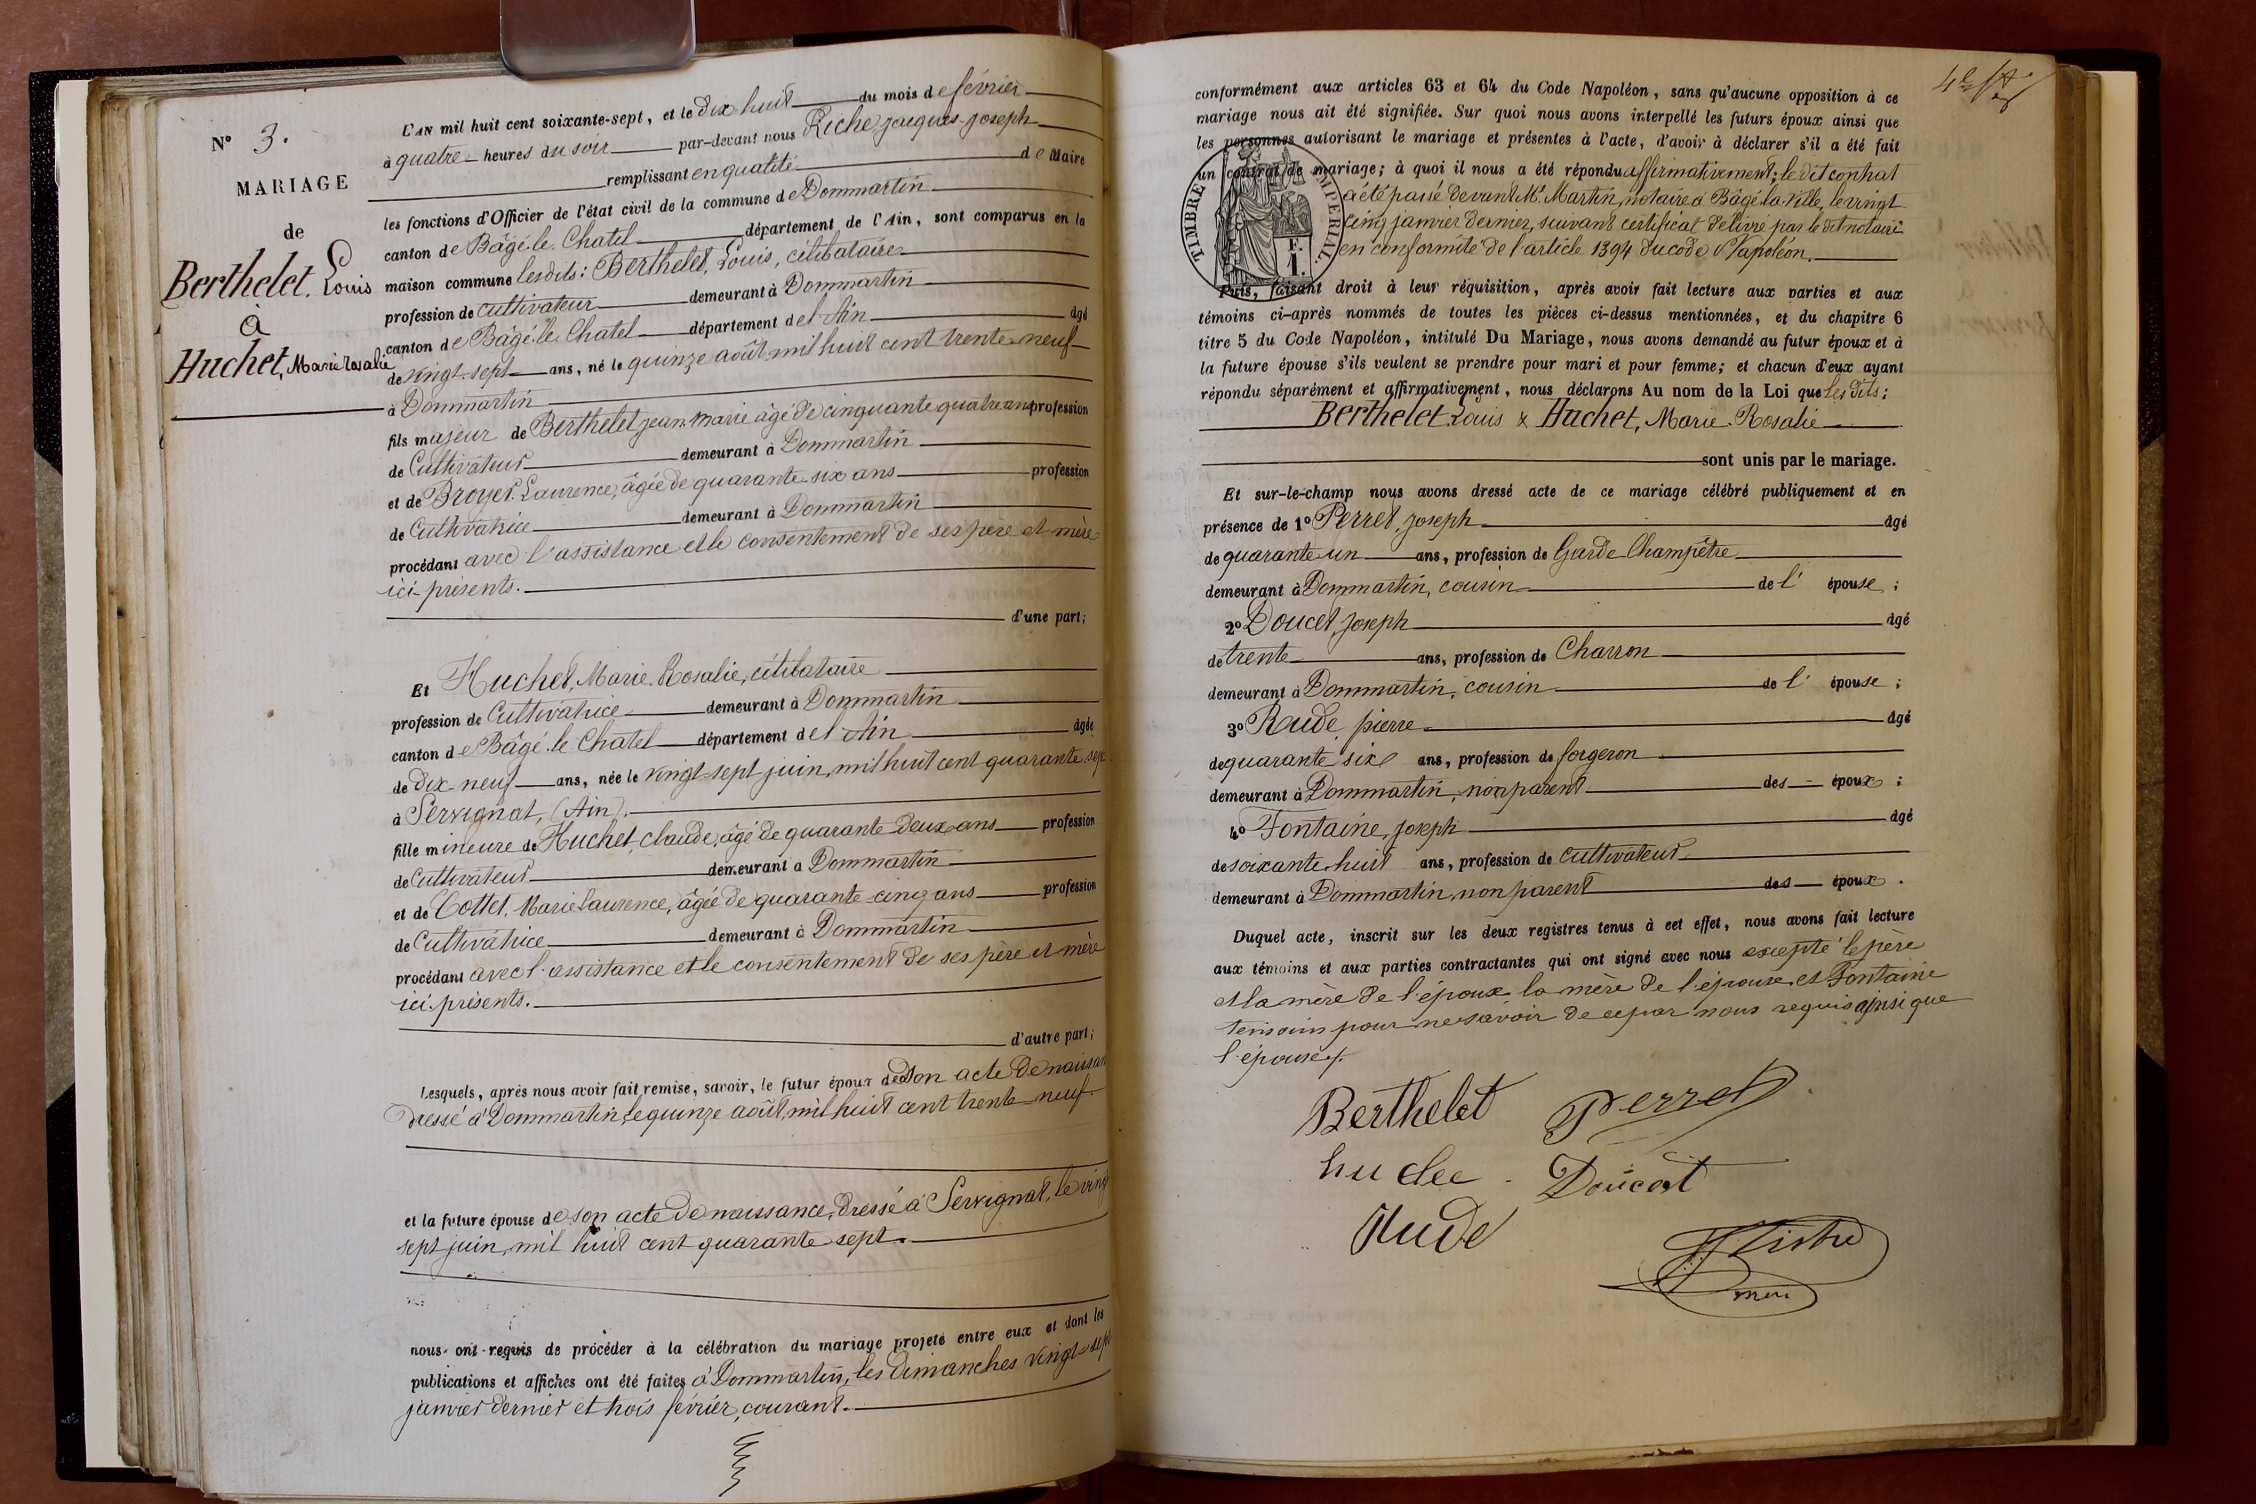 N° 3.
MARIAGE
de
Berthelet, Louis
à
Huchet, Marie Rosalie
L'AN mil huit cent soixante-sept, et le dix huit du mois de février
à quatre heures du soir par-devant nous Riche Jacques-Joseph
remplissant en qualité de Maire
les fonctions d'Officier de l'état civil de la commune de Dommartin
canton de Bâgé-le-Chatel département de l'Ain, sont comparus en la
maison commune lesdits : Berthelet, Louis, célibataire
profession de cultivateur demeurant à Dommartin
canton de Bâgé-le-Chatel département de l'Ain âgé
de vingt-sept ans, né le quinze août mil huit cent trente-neuf
à Dommartin
fils majeur de Berthelet jean-Marie âgé de cinquante quatre ans profession
de Cultivateur demeurant à Dommartin
et de Broyer Laurence, âgée de quarante-six ans profession
de Cultivatrice demeurant à Dommartin
procédant avec l'assistance et le consentement de ses père et mère
ici présents.
d'une part;
Et Huchet, Marie-Rosalie, célibataire
profession de Cultivatrice demeurant à Dommartin
canton de Bâgé-le-Chatel département de l'Ain âgée
de dix-neuf ans, née le vingt-sept juin, mil huit cent quarante sept
à Servignat, (Ain).
fille mineure de Huchet, Claude, âgé de quarante-deux ans profession
de Cultivateur demeurant à Dommartin
et de Cottet, Marie Laurence, âgée de quarante-cinq ans profession
de Cultivatrice demeurant à Dommartin
procédant avec l'assistance et le consentement de ses père et mère
ici présents.
d'autre part;
Lesquels, après nous avoir fait remise, savoir, le futur époux de son acte de naissan
dressé à Dommartin, le quinze août, mil huit cent trente-neuf
et la future épouse de son acte de naissance, dressé à Servignat, le vingt
sept juin, mil huit cent quarante sept.
nous ont requis de procéder à la célébration du mariage projeté entre eux et dont les
publications et affiches ont été faites à Dommartin, les dimanches vingt-sept
janvier dernier et trois février, courant.
conformément aux articles 63 et 64 du Code Napoléon, sans qu'aucune opposition à ce
mariage nous ait été signifiée. Sur quoi nous avons interpellé les futurs époux ainsi que
les personnes autorisant le mariage et présentes à l'acte, d'avoir à déclarer s'il a été fait
un contrat de mariage; à quoi il nous a été répondu affirmativement; le dit contrat
a été passé devant Me Martin, notaire à Bâgé-la-Ville, le vingt
cinq janvier dernier, suivant certificat délivré par le dit notaire
en conformité de l'article 1394 du code Napoléon.
TIMBRE IMPERIAL
F.
1.
Puis, faisant droit à leur réquisition, après avoir fait lecture aux parties et aux
témoins ci-après nommés de toutes les pièces ci-dessus mentionnées, et du chapitre 6
titre 5 du Code Napoléon, intitulé Du Mariage, nous avons demandé au futur époux et à
la future épouse s'ils veulent se prendre pour mari et pour femme; et chacun d'eux ayant
répondu séparément et affirmativement, nous déclarons Au nom de la Loi que Les dits :
Berthelet Louis & Huchet, Marie-Rosalie
sont unis par le mariage.
Et sur-le-champ nous avons dressé acte de ce mariage célébré publiquement et en
présence de 1° Perret, Joseph âgé
de quarante-un ans, profession de Garde Champêtre
demeurant à Dommartin, cousin de l'épouse;
2° Doucet, Joseph âgé
de trente ans, profession de Charron
demeurant à Dommartin, cousin de l'épouse;
3° Rude, pierre âgé
de quarante six ans, profession de forgeron
demeurant à Dommartin, non parent des époux;
4° Fontaine, Joseph âgé
de soixante-huit ans, profession de Cultivateur
demeurant à Dommartin, non parent des époux.
Duquel acte, inscrit sur les deux registres tenus à cet effet, nous avons fait lecture
aux témoins et aux parties contractantes qui ont signé avec nous excepté le père
et la mère de l'époux la mère de l'épouse, et Fontaine
témoin pour ne savoir de ce par nous requis ainsi que
l'épouse.
Berthelet Perret
Doucet
Rude